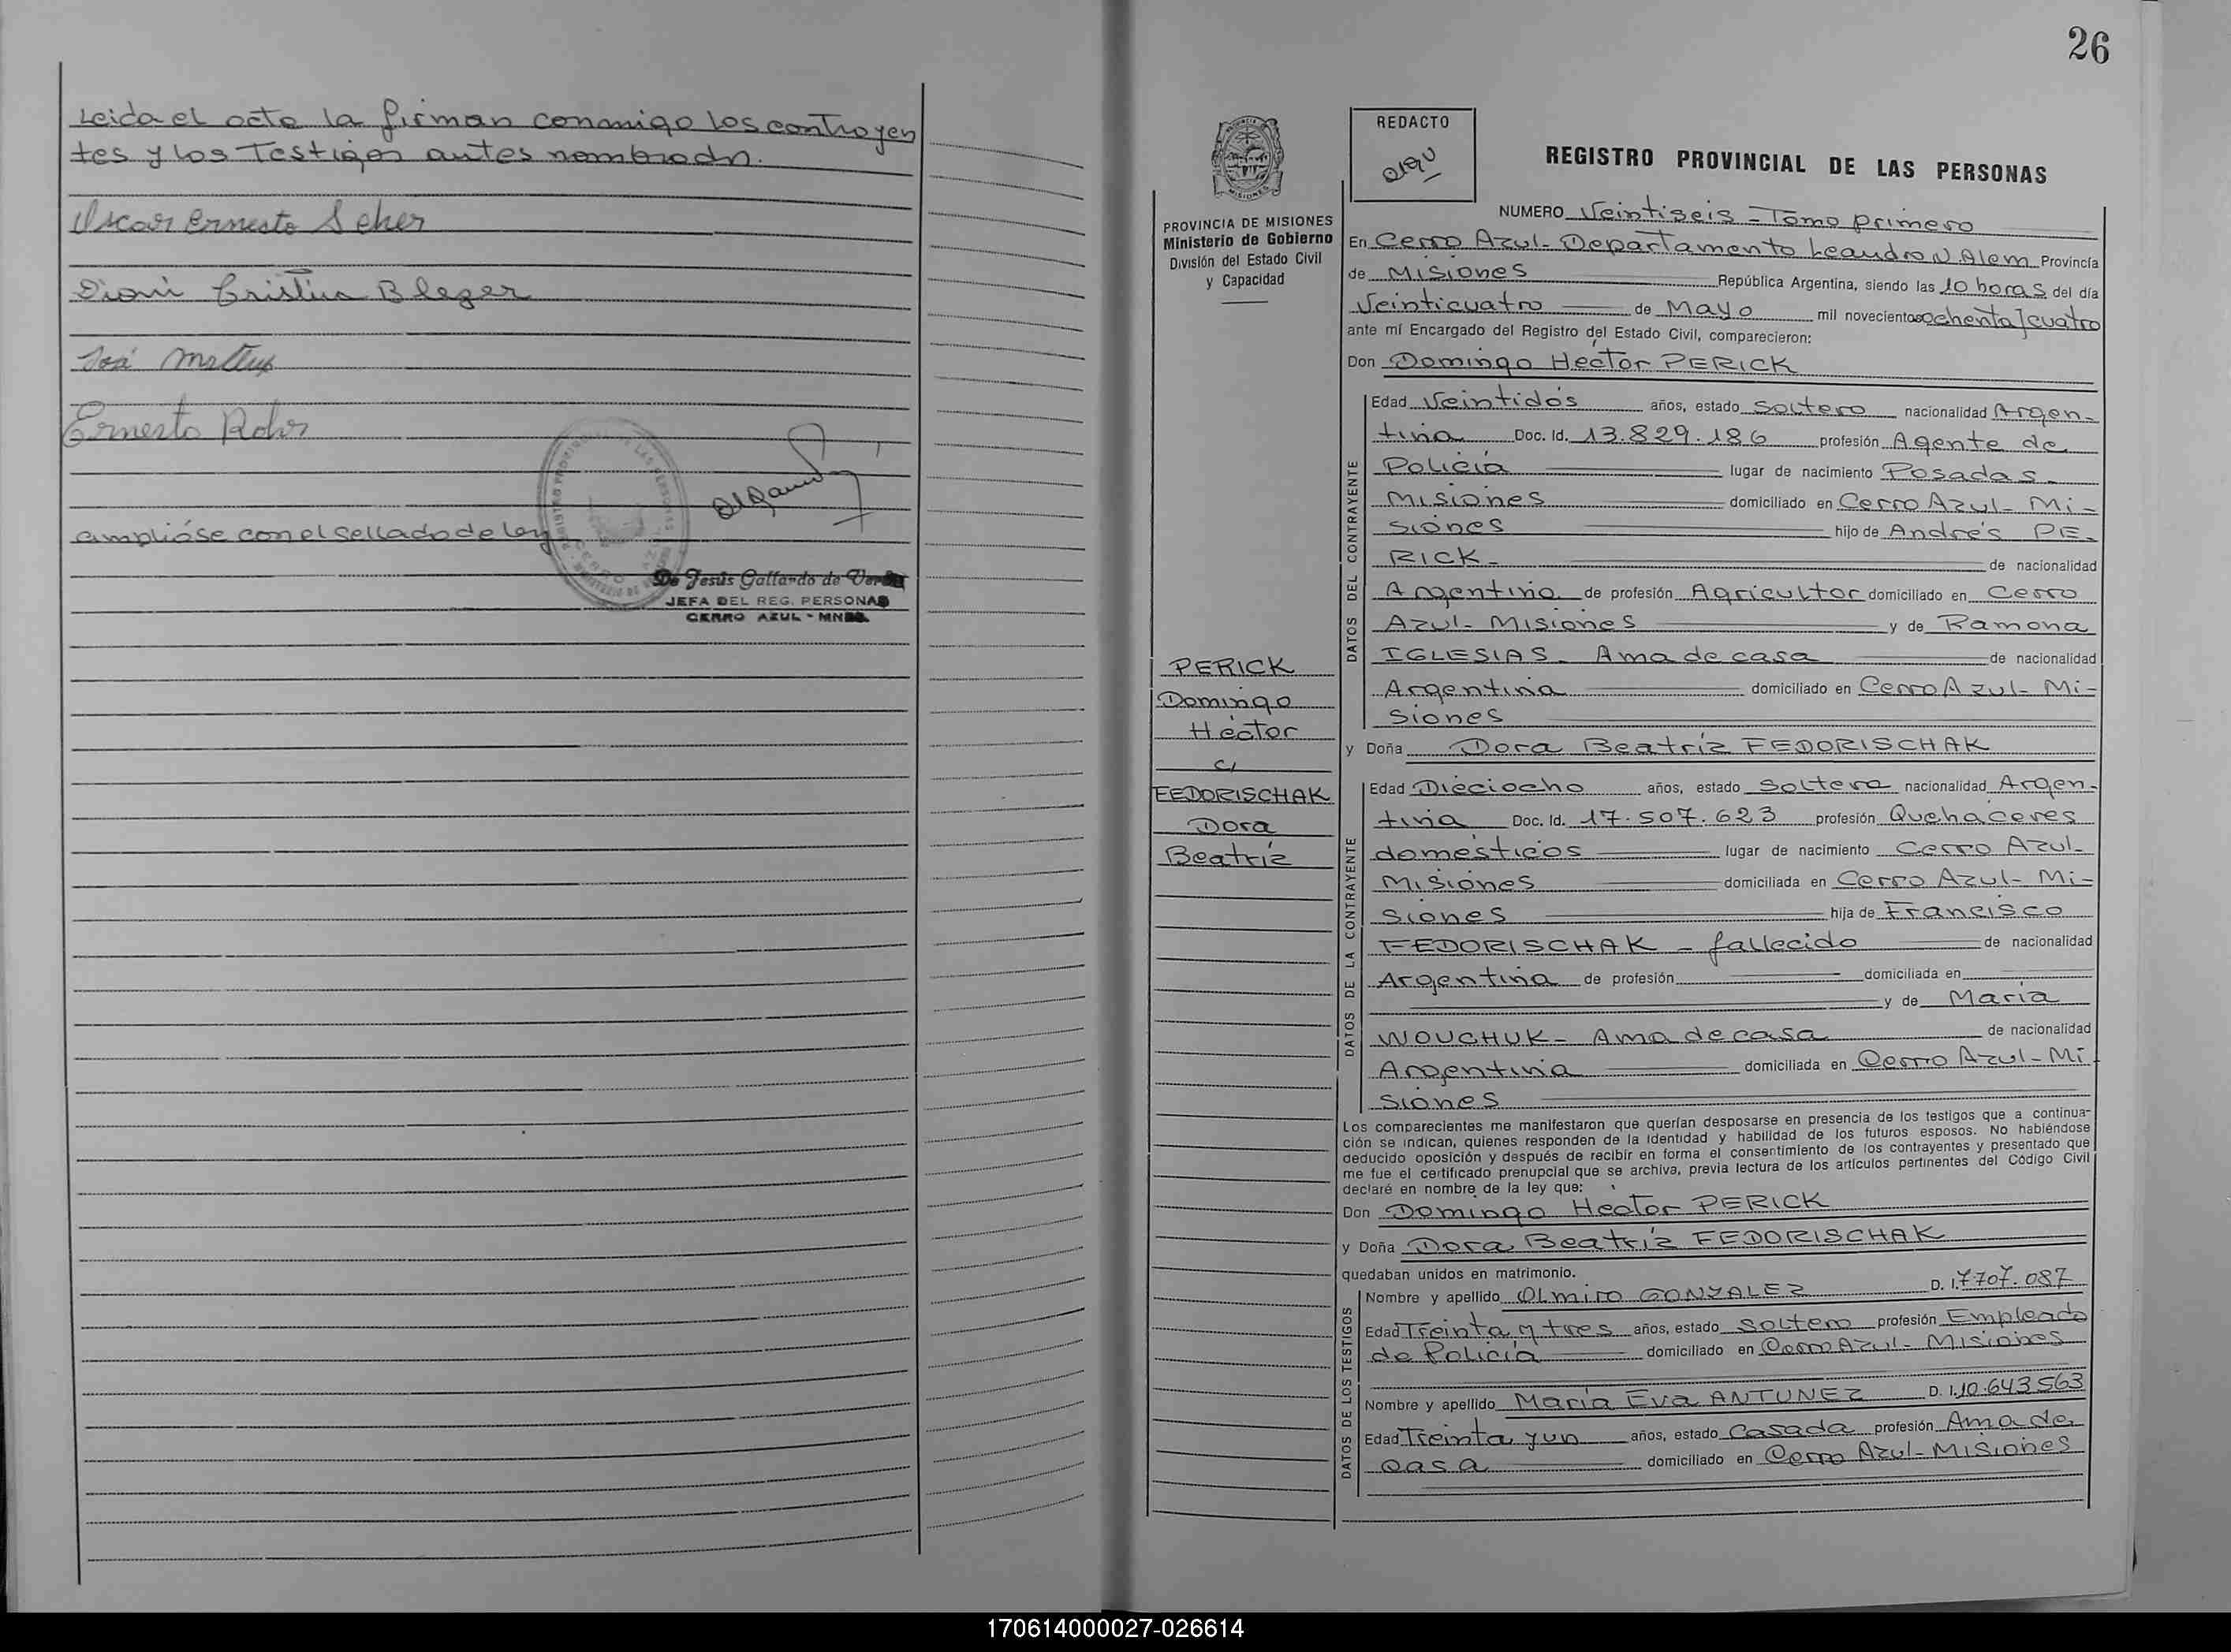 Leida el acta la firman conmigo los contrayen
tes y los Testigos antes nombrados.
Oscar Ernesto Scher
Cristina Blezer
José
Ernesto Rohr
ampliáse con el sellado de ley
De Jesús Gallardo de
JEFA DEL REG. PERSONAS
CERRO AZUL - MNES.
26
PROVINCIA DE MISIONES
Ministerio de Gobierno
División del Estado Civil
y Capacidad
PERICK
Domingo
Héctor
c/
FEDORISCHAK
Dora
Beatríz
REDACTO
REGISTRO PROVINCIAL DE LAS PERSONAS
NUMERO Veintiseis - Tomo primero
En Cerro Azul - Departamento Leandro N. Alem Provincia
de Misiones República Argentina, siendo las 10 horas del día
Veinticuatro de Mayo mil novecientos ochenta y cuatro
ante mí Encargado del Registro del Estado Civil, comparecieron:
Don Domingo Hector PERICK
DATOS DEL CONTRAYENTE
Edad Veintidós años, estado Soltero nacionalidad Argen-
tina Doc. Id. 13.829.186 profesión Agente de
Policia lugar de nacimiento Posadas
Misiones domiciliado en Cerro Azul - Mi-
siones hijo de Andrés PE-
RICK- de nacionalidad
Argentina de profesión Agricultor domiciliado en Cerro
Azul - Misiones y de Ramona
IGLESIAS - Ama de casa de nacionalidad
Argentina domiciliado en Cerro Azul - Mi-
siones
y Doña Dora Beatríz FEDORISCHAK
DATOS DE LA CONTRAYENTE
Edad Dieciocho años, estado Soltera nacionalidad Argen-
tina Doc. Id. 17.507.623 profesión Quehaceres
domésticos lugar de nacimiento Cerro Azul-
Misiones domiciliada en Cerro Azul - Mi-
siones hija de Francisco
FEDORISCHAK - fallecido de nacionalidad
Argentina de profesión domiciliada en
y de María
WOUCHUK - Ama de casa de nacionalidad
Argentina domiciliada en Cerro Azul - Mi
siones
Los comparecientes me manifestaron que querían desposarse en presencia de los testigos que a continua-
ción se indican, quienes responden de la identidad y habilidad de los futuros esposos. No habiéndose
deducido oposición y después de recibir en forma el consentimiento de los contrayentes y presentado que
me fue el certificado prenupcial que se archiva, previa lectura de los artículos pertinentes del Código Civil
declaré en nombre de la ley que:
Don Domingo Hector PERICK
y Doña Dora Beatríz FEDORISCHAK
quedaban unidos en matrimonio.
DATOS DE LOS TESTIGOS
Nombre y apellido Olmiro GONZALEZ D. I. 7.707.087
Edad Treinta y tres años, estado Soltero profesión Empleado
de Policía domiciliado en Cerro Azul - Misiones
Nombre y apellido María Eva ANTUNEZ D. I. 10.643.563
Edad Treinta y un años, estado Casada profesión Ama de
casa domiciliado en Cerro Azul - Misiones
170614000027-026614